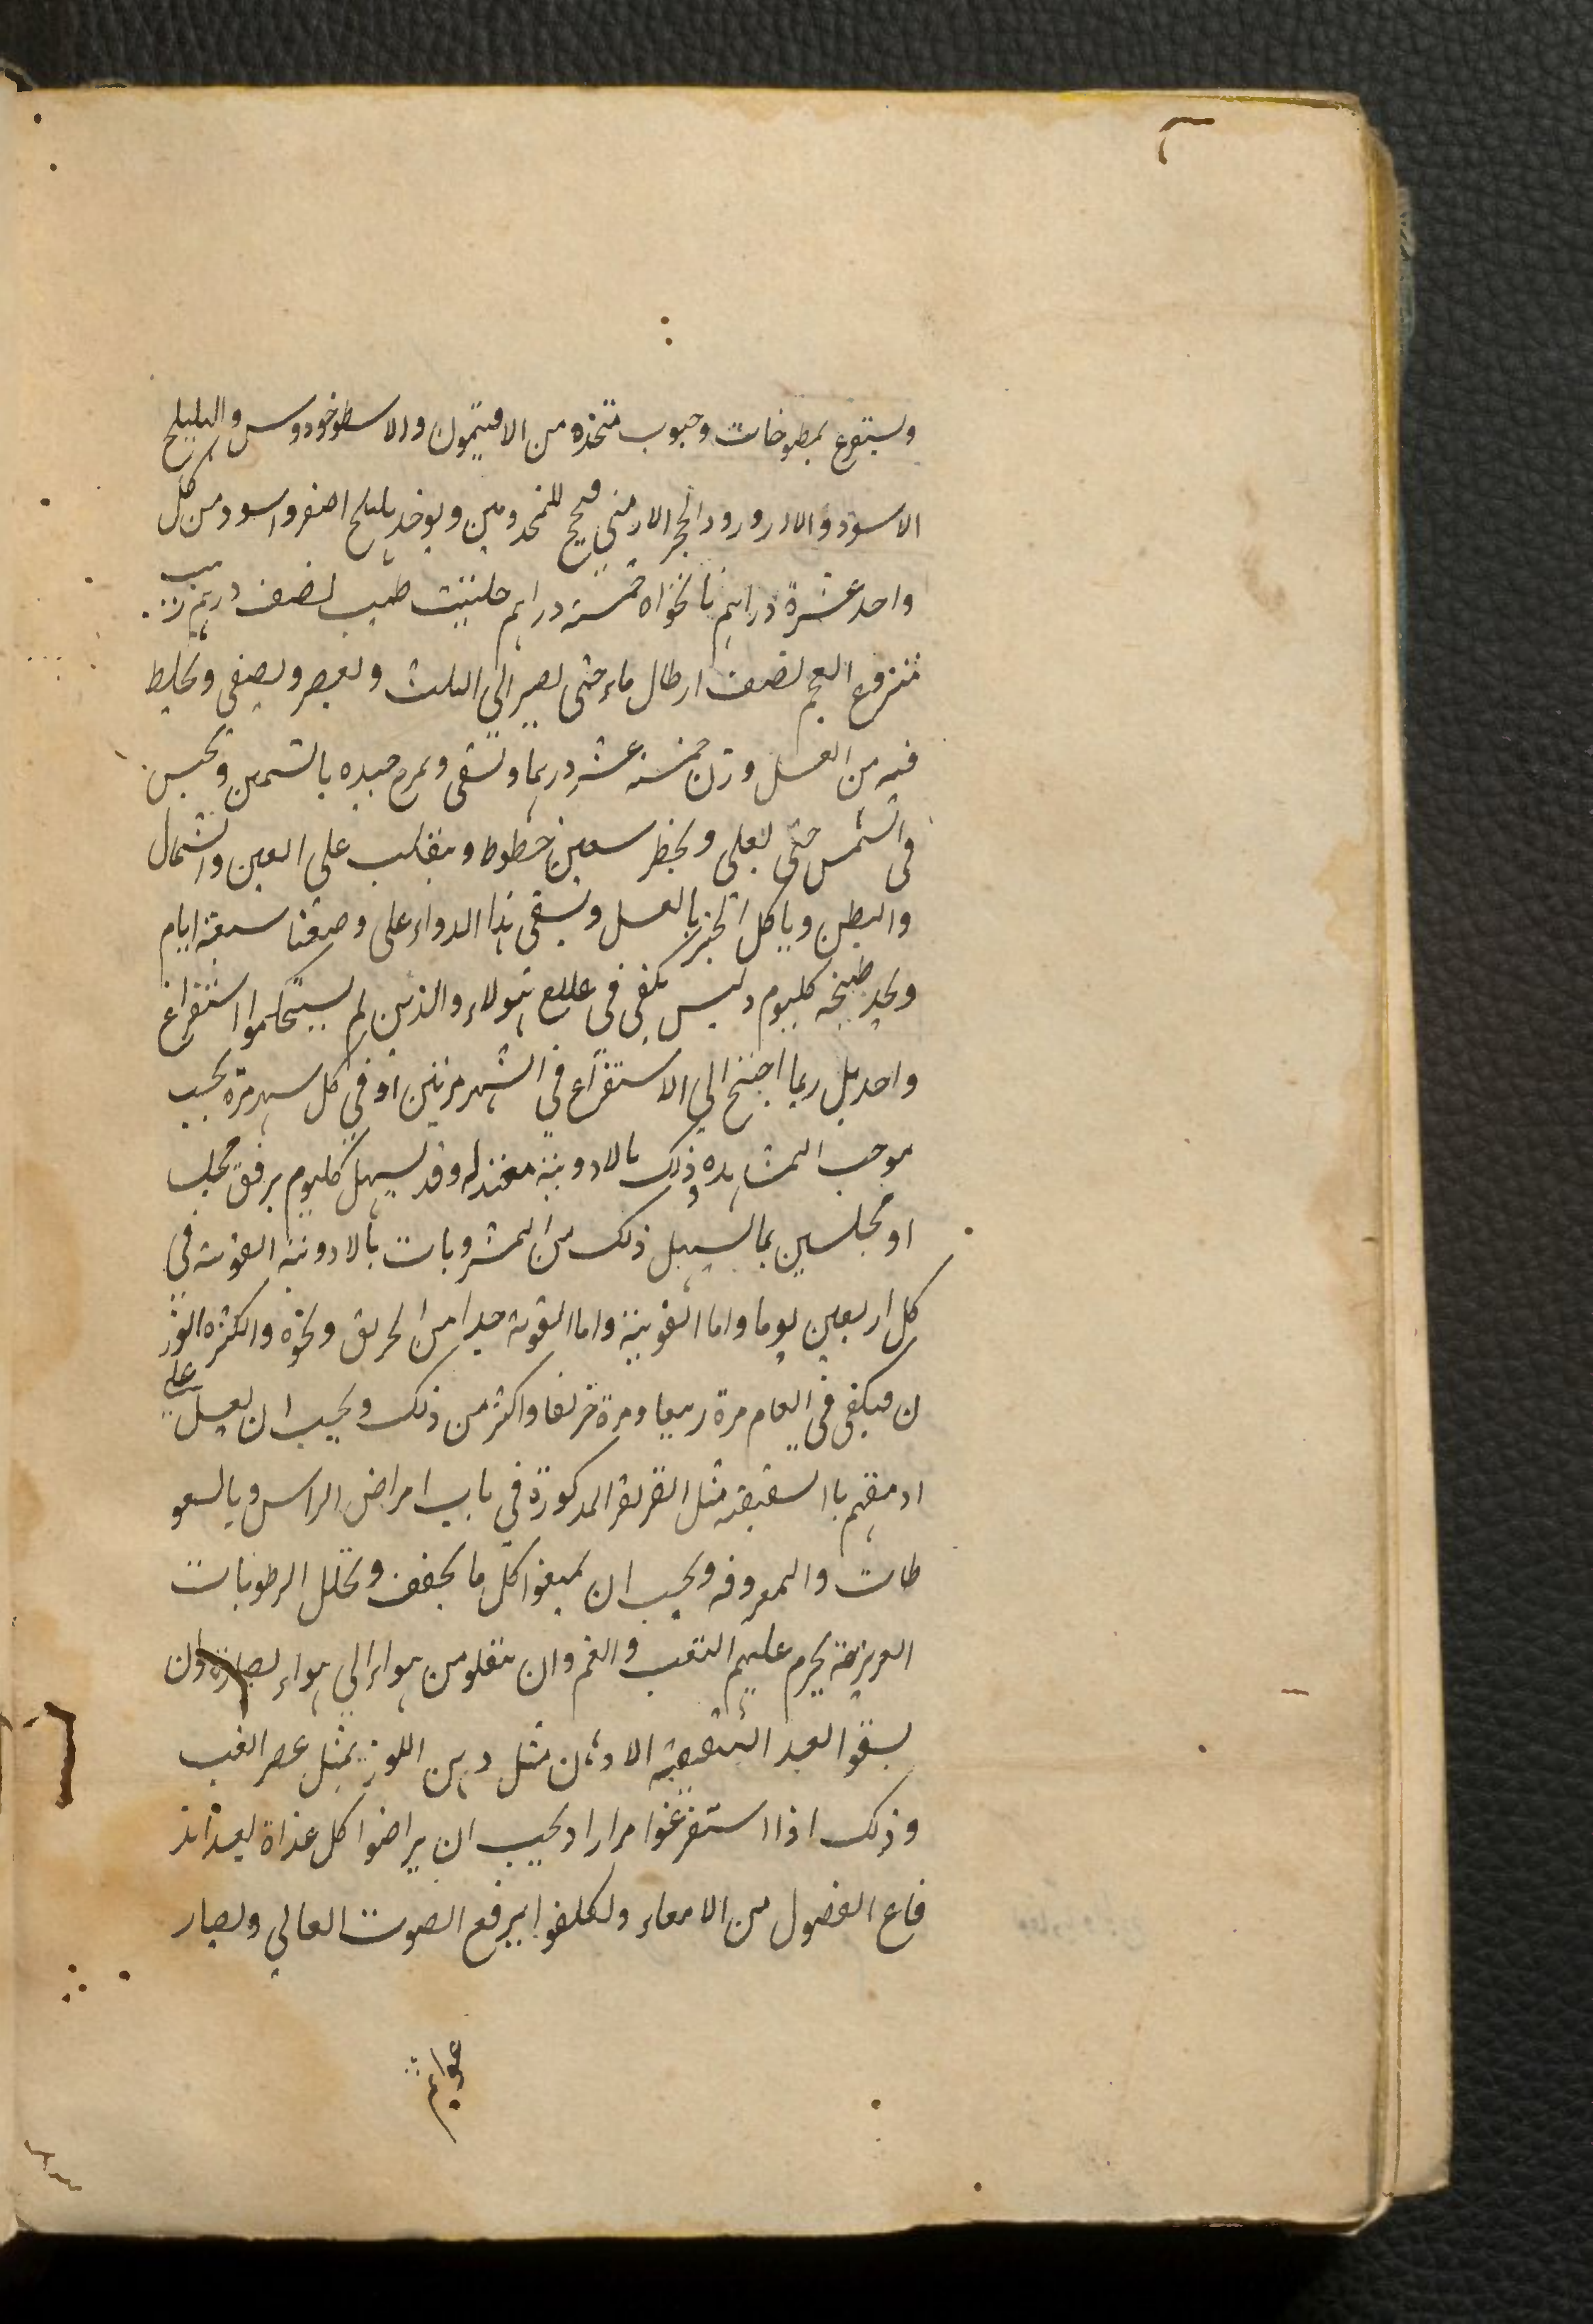 ويستفرغ بمطبوخات وحبوب متخذه من الافتيمون والاسطوخودوس والهليلج
الاسود والاذرورود الحجر الارمنى للمجذومين ويوخذ هليلج اصفر واسود من كل
واحد عشرة دراهم نانخواه خمسة دراهم حلتيت طيب نصف درهم زبيب
منزوع العجم نصف ارطال ماء حتى يصير الى الثلث ويعصر ويصفى ويخلط
فيه من العسل وزن خمسة عشر درهما ويسقى ويمرخ جسده بالسمن ويحبس
فى الشمس حتى يغلى ويخطر سبعين خطوط وينقلب على اليمين والشمال
والبطن وياكل الخبز بالعسل ويسقى هذا الدواء على وصفنا سبعة ايام
ويجد طبيخه كليوم وليس يكفى فى علاج هولاء والذين لم يستحكموا استفراغ
واحد بل ربما احتيج الى الاستفراغ فى الشهر مرتين او فى كل شهر مرة بحسب
موجب المشاهده وذلك بالادوية معتدله وقد يسهل كليوم برفق مجلسا
او مجلسين بما يسهل ذلك من المشروبات بالادوية القوية فى
كل اربعين يوما واما القوية واما القوية جدا من الخربق ونحوه
ن فيكفى فى العام مرة ربيعا ومرة خريفا واكثر من ذلك ويجب ان يعمل على
ادمغتهم بالتنقية مثل التنقية المذكورة فى باب امراض الراس وبالسعو
طات والمعروفه ويجب ان يمنعوا كل ما يجفف ويحلل الرطوبات
الغريزية يحرم عليهم التعب والغم وان ينقلو من هواء الى هواء يضاده وان
يسقوا بعد التنقية الادهان مثل دهن اللوز بمثل عصر العنب
وذلك اذا استفرغوا مرارا ويجب ان يراضوا كل غداة بعد اند
فاع الفضول من الامعاء ويكلفوا برفع الصوت العالى ويصار
عوابهم